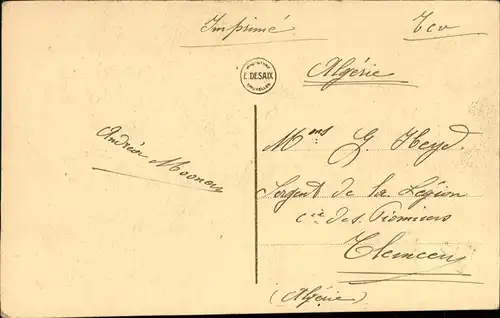 Imprimé
Tcv
PHOTOTYPIE
E. DESAIX
BRUXELLES
Algérie
Mons G. Heyd
Sergent de la Légion
Cie des Pionniers
Tlemcen
(Algérie)